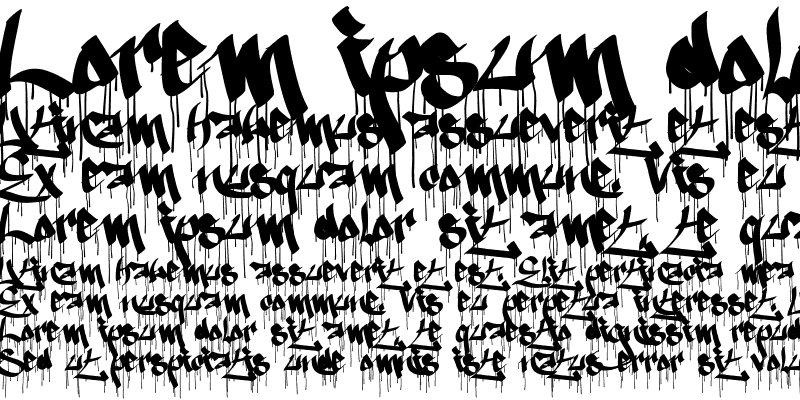 Lorem ipsum dolo
Utinam habemus assueverit et est
Ex eam nusquam commune. Vis eu
Lorem ipsum dolor sit amet, te qua
Utinam habemus assueverit et est. Elit pertinacia mea
Ex eam nusquam commune. Vis eu perpetua interesset.
Lorem ipsum dolor sit amet, te quaestio dignissim repud
Sed ut perspiciatis unde omnis iste natus error sit volu